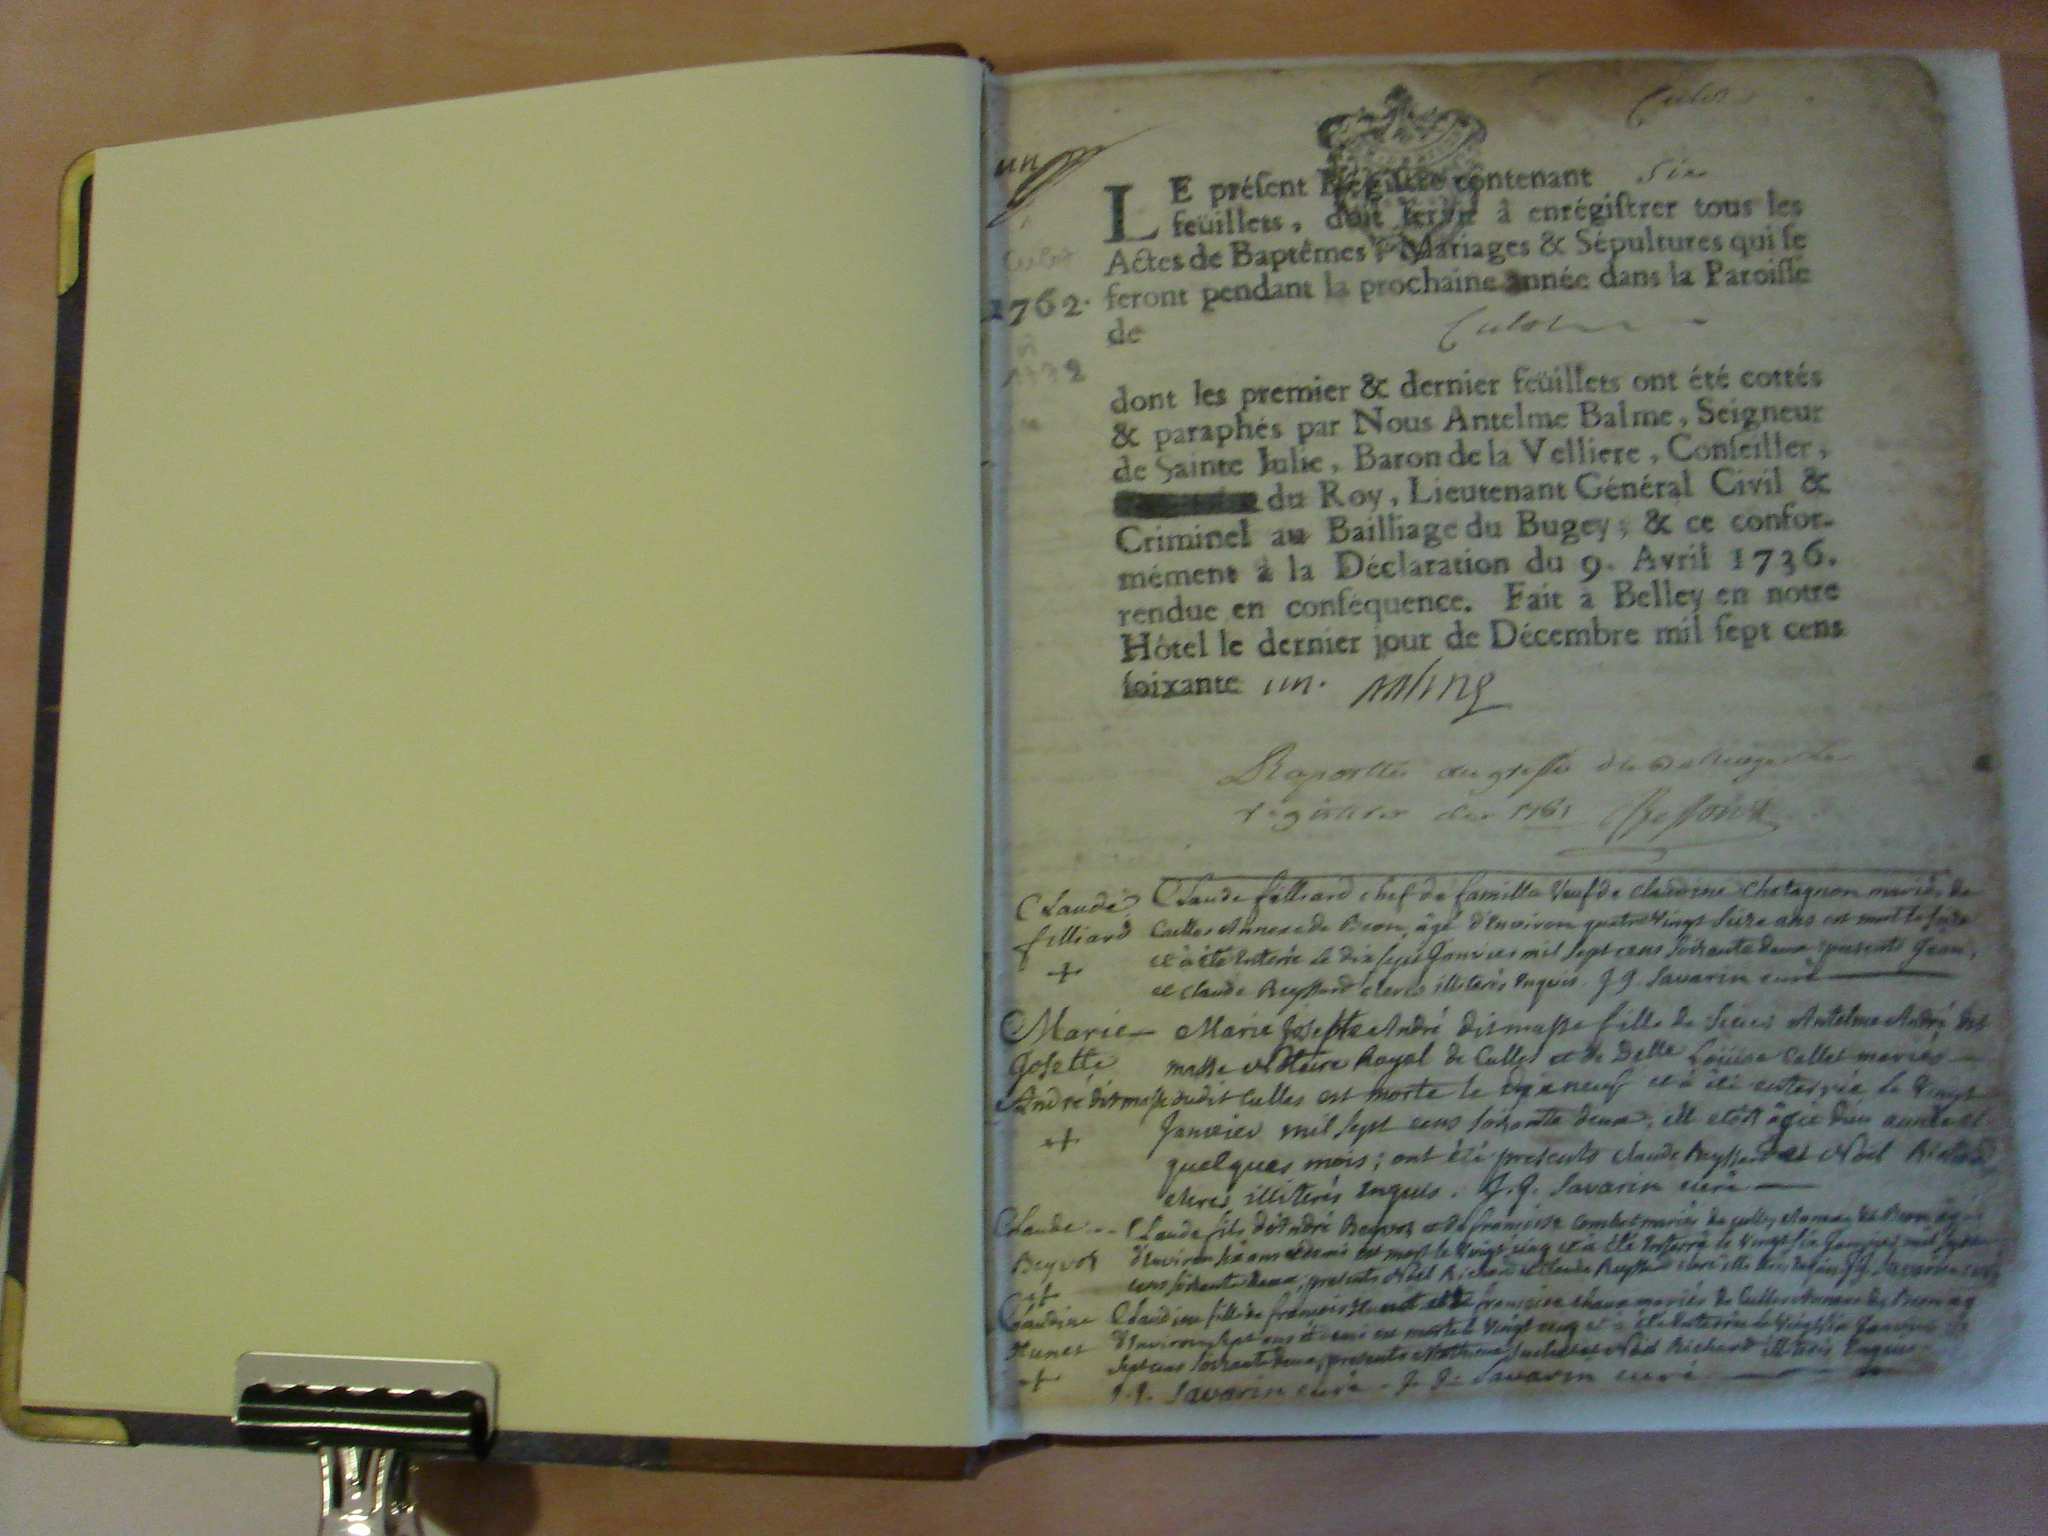 un
LE préſent Regiſtre contenant Six
feüillets, doit ſervir à enrégiſtrer tous les
Actes de Baptêmes, Mariages & Sépultures qui ſe
1762. feront pendant la prochaine année dans la Paroiſſe
de Culoz
dont les premier & dernier feüillets ont été cottés
& paraphés par Nous Antelme Balme, Seigneur
de Sainte Julie, Baron de la Velliere, Conſeiller,
du Roy, Lieutenant Général Civil &
Criminel au Bailliage du Bugey; & ce confor-
mément à la Déclaration du 9. Avril 1736.
rendue en conſéquence. Fait à Belley en notre
Hôtel le dernier jour de Décembre mil ſept cens
ſoixante un.
Raportté au greffe
1761
Claude Claude filliard chef de famille Veuf de claudine Chatagnon mariés de
filliard Culles Annexe de Beon, âgé d'Environ quatre Vingt Seize ans est mort le
+ et à été Enterré le dix sept Janvier mil sept cens soixante deux, presents Jean,
et claude Reyssard clercs illiterés Enquis. J. J. Savarin curé
Marie Marie Josephte André dit masse fille de Sieur Antelme André dit
Josette masse Notaire Royal de Culles et de Delle Loüise Collet mariés
André dit masse dudit Culles est morte le dix neuf et à été enterrée le Vingt
+ Janvier mil sept cens soixante deux, elle etoit agée d'un année et
quelques mois; ont été presents claude Reyssard et Noël Richard
clercs illiterés Enquis. J. J. Savarin curé
Claude Claude fils d'André Beyvoz et de françoise Combet mariés de culles Annexe de Beon âgé
Beyvoz d'Environ six ans et demi est mort le Vingt cinq et à été Enterré le Vingt six Janvier mil sept
+ cens soixante deux, presents Noël Richard et Claude Reyssard J. J. Savarin curé
Claudine Claudine fille de françois Hunet et de françoise mariés de Culles Annexe de Beon ag
Hunet d'Environ sept ans et demi est morte le Vingt cinq et à été Enterrée le Vingt six Janvier
+ sept cens soixante deux, presents et Noël Richard illiterés Enquis
J. J. Savarin curé. J. J. Savarin curé